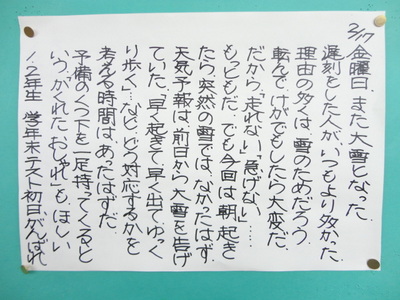 2/17 金曜日、また大雪となった。
遅刻をした人が、いつもより多かった。
理由の多くは、雪のためだろう。
転んで、けがでもしたら大変だ。
だから、「走れない」「急げない」……
もっともだ。でも今回は、朝、起き
たら、突然の雪では、なかったはず。
天気予報は、前日から大雪を告げ
ていた。早く起きて、早く出て、ゆっく
り歩く…など、どう対応するかを
考える時間は、あったはずだ。
予備のくつ下を一足持ってくると
いう、「かくれた、おしゃれ」も、ほしい
1、2年生 学年末テスト初日がんばれ